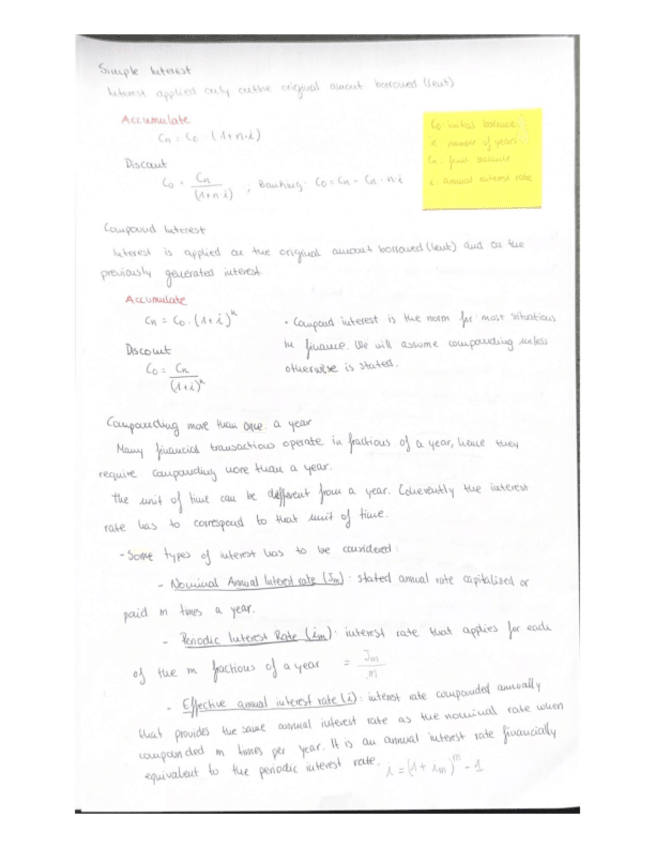 Simple Interest
Interest applied only on the original amount borrowed (lent)
Accumulate
Cn = C0 · (1+n·i)
Discount
C0 = Cn / (1+n·i) , Banking: C0 = Cn - Cn · n·i
C0: initial balance
n: number of years
Cn: final balance
i: annual interest rate
Compound Interest
Interest is applied on the original amount borrowed (lent) and on the
previously generated interest.
Accumulate
Cn = C0 · (1+i)^n
• Compound interest is the norm for most situations
in finance. We will assume compounding unless
otherwise is stated.
Discount
C0 = Cn / (1+i)^n
Compounding more than once a year
Many financial transactions operate in fractions of a year, hence they
require compounding more than a year.
The unit of time can be different from a year. Coherently the interest
rate has to correspond to that unit of time.
- Some types of interest has to be considered:
- Nominal Annual Interest rate (Jm): stated annual rate capitalized or
paid m times a year.
- Periodic Interest Rate (im): interest rate that applies for each
of the m fractions of a year = Jm / m
- Effective annual interest rate (i): interest rate compounded annually
that provides the same annual interest rate as the nominal rate when
compounded m times per year. It is an annual interest rate financially
equivalent to the periodic interest rate. i = (1 + im)^m - 1